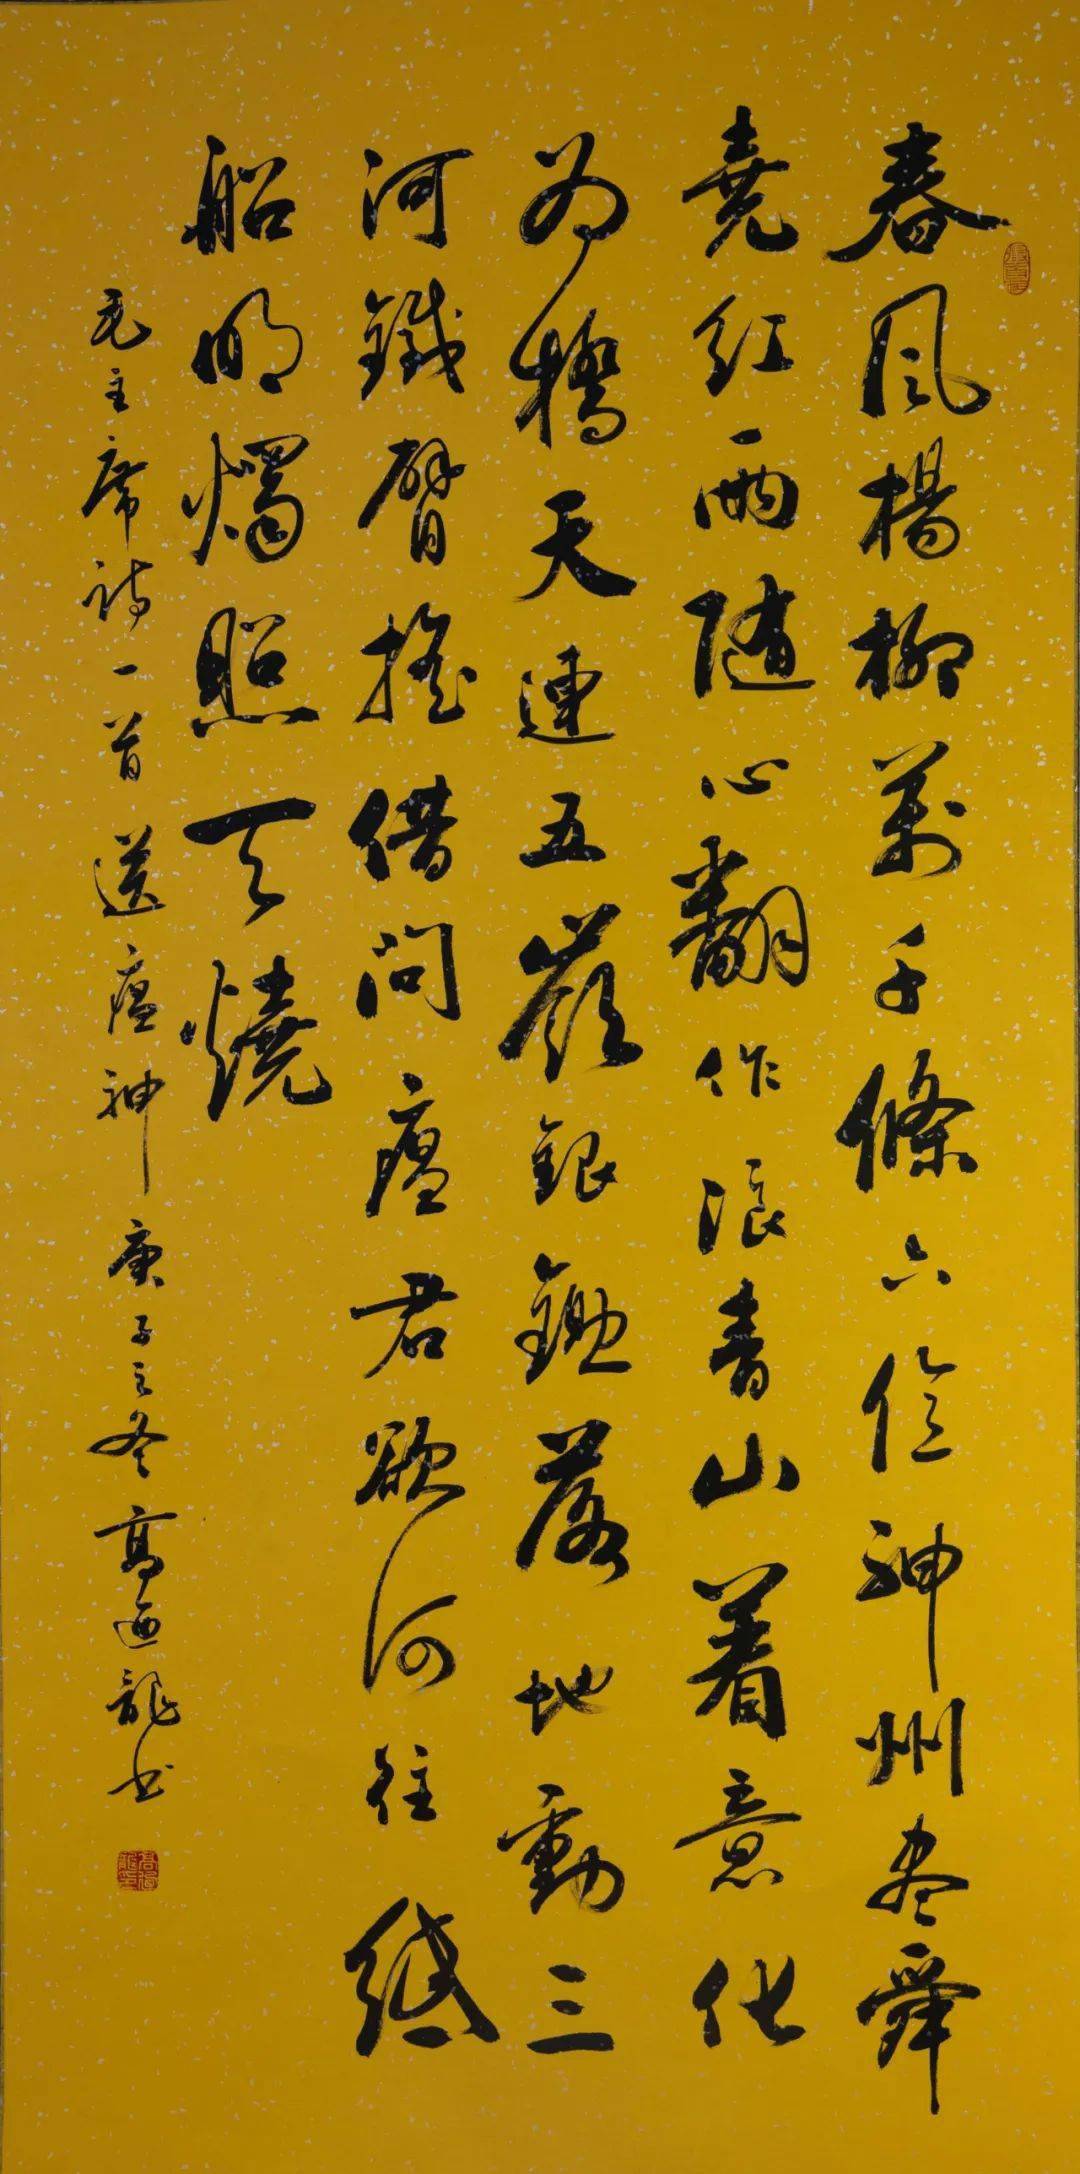 春風楊柳萬千條六億神州盡舜
堯紅雨随心翻作浪青山着意化
為橋天連五嶺銀鋤落地動三
河鐵臂搖借問瘟君欲何往紙
船明燭照天燒
毛主席詩一首送瘟神庚子之冬高迺龍书